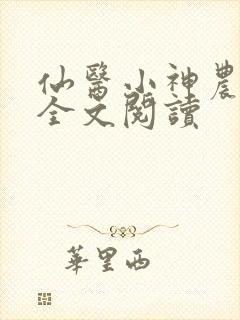 仙醫小神農
全文閱讀
華里西